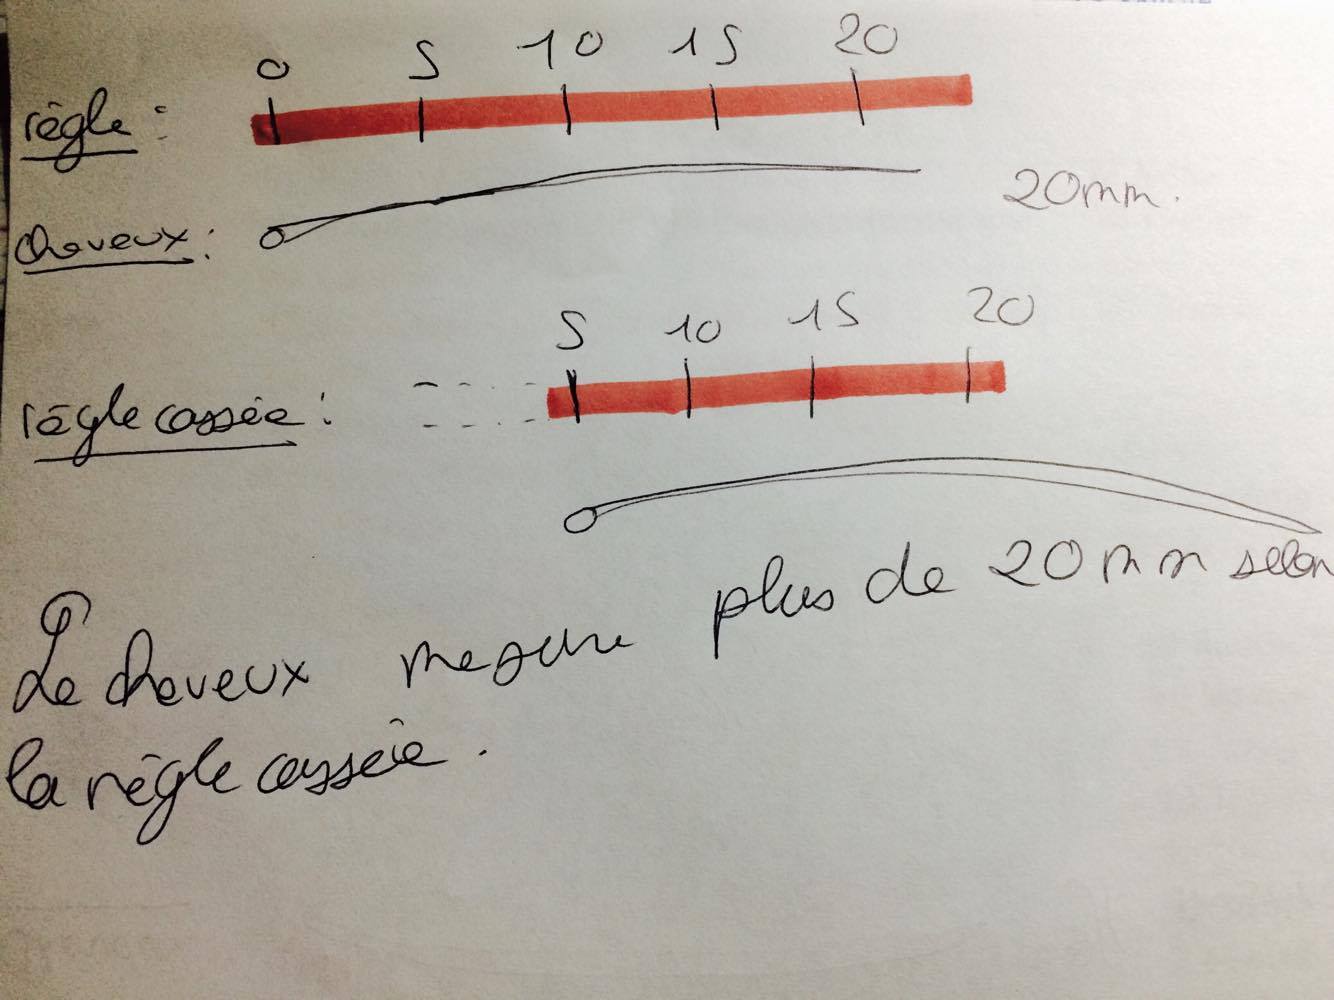 0 5 10 15 20
règle :
20mm.
cheveux :
5 10 15 20
règle cassée :
Le cheveux mesure plus de 20 mm selon
la règle cassée.